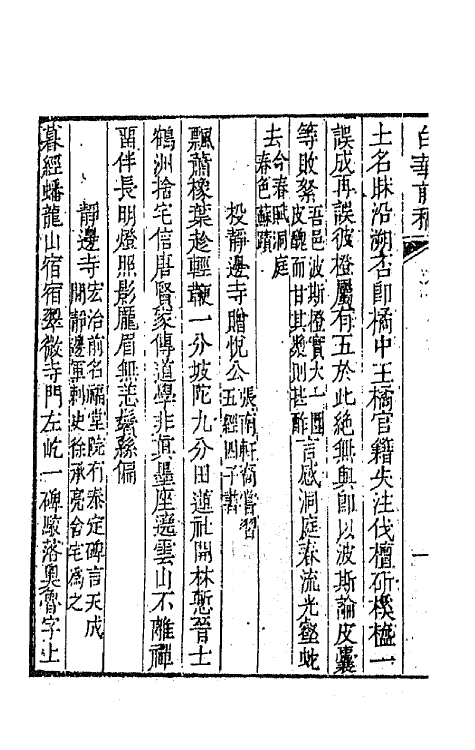 白華前稿
土名眛沿溯否即橘中王橘官籍失注伐檀斫樸樝一
誤成再誤彼橙屬有五於此絕無與即以波斯論皮囊
等敗絮吾邑波斯橙實大一圍皮醜而甘其漿則甚酢言感洞庭春流光壑蛇
去今春賦洞庭春色蘇蹟
投靜邊寺贈悅公張南軒裔嘗習五經四子書
飄蕭橡葉趁輕䩺一分坡陀九分田蓮社開林慙晉士
鶴洲捨宅信唐賢家傳道學非真墨座遶雲山不離禪
畱伴長明燈照影龎眉無恙鬢絲偏
靜邊寺宏治前名福堂院有泰定碑言天成間靜邊軍刺史徐承亮舍宅為之
暮經蟠龍山宿宿翠微寺門左屹一碑駮落奧魯字上